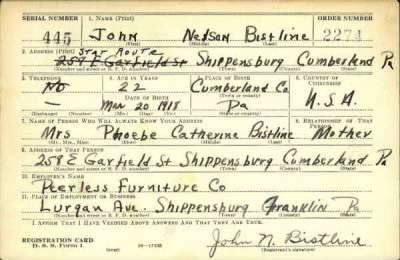 SERIAL NUMBER 1. NAME (Print) ORDER NUMBER
445 John Nelson Bistline 2274
(First) (Middle) (Last)
2. ADDRESS (Print) Star Route
258 E Garfield St Shippensburg Cumberland Pa
(Number and street or R. F. D. number) (Town) (County) (State)
3. TELEPHONE 4. AGE IN YEARS 5. PLACE OF BIRTH 6. COUNTRY OF CITIZENSHIP
No 22 Cumberland Co
DATE OF BIRTH
— Mar 20 1918 Pa U.S.A.
(Exchange) (Number) (Mo.) (Day) (Yr.) (State or country)
7. NAME OF PERSON WHO WILL ALWAYS KNOW YOUR ADDRESS 8. RELATIONSHIP OF THAT PERSON
Mrs Phoebe Catherine Bistline Mother
(Mr., Mrs., Miss) (First) (Middle) (Last)
9. ADDRESS OF THAT PERSON
258 E Garfield St Shippensburg Cumberland Pa
(Number and street or R. F. D. number) (Town) (County) (State)
10. EMPLOYER'S NAME
Peerless Furniture Co
11. PLACE OF EMPLOYMENT OR BUSINESS
Lurgan Ave. Shippensburg Franklin Pa
(Number and street or R. F. D. number) (Town) (County) (State)
I AFFIRM THAT I HAVE VERIFIED ABOVE ANSWERS AND THAT THEY ARE TRUE.
REGISTRATION CARD
D. S. S. FORM 1 John N. Bistline
(Registrant's signature)